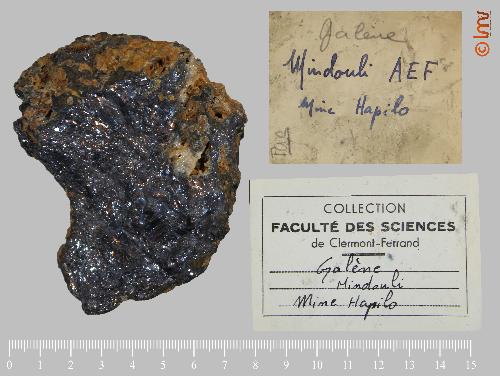 Galène
Mindouli AEF
Mine Hapilo
COLLECTION
FACULTÉ DES SCIENCES
de Clermont-Ferrand
Galène
Mindouli
Mine Hapilo
0 1 2 3 4 5 6 7 8 9 10 11 12 13 14 15
© lmv